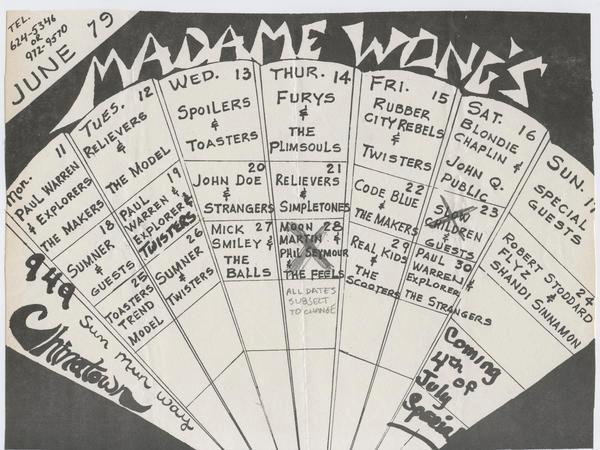 TEL.
624-5346
OR
972-9570
JUNE 79
MADAME WONG'S
Mon. 11
PAUL WARREN
& EXPLORERS
THE MAKERS
18
SUMNER
&
GUESTS
25
TOASTERS
TREND
MODEL
TUES. 12
RELIEVERS
&
THE MODEL
19
PAUL
WARREN &
EXPLORER &
TWISTERS
26
SUMNER
&
TWISTERS
WED. 13
SPOILERS
&
TOASTERS
20
JOHN DOE
&
STRANGERS
MICK 27
SMILEY &
THE
BALLS
THUR. 14
FURYS
&
THE
PLIMSOULS
21
RELIEVERS
&
SIMPLETONES
MOON 28
MARTIN &
PHIL SEYMOUR
&
THE FEELS
ALL DATES
SUBJECT
TO CHANGE
FRI. 15
RUBBER
CITY REBELS
&
TWISTERS
22
CODE BLUE
&
THE MAKERS
29
REAL KIDS
&
THE
SCOOTERS
SAT. 16
BLONDIE
CHAPLIN &
JOHN Q.
PUBLIC
23
CHILDREN
&
GUESTS
PAUL 30
WARREN &
EXPLORER
&
THE STRANGERS
SUN. 17
SPECIAL
GUESTS
24
ROBERT STODDARD
FLYZ &
SHANDI SINNAMON
949
Sun Mun Way
Chinatown
Coming
4th of
July
Special